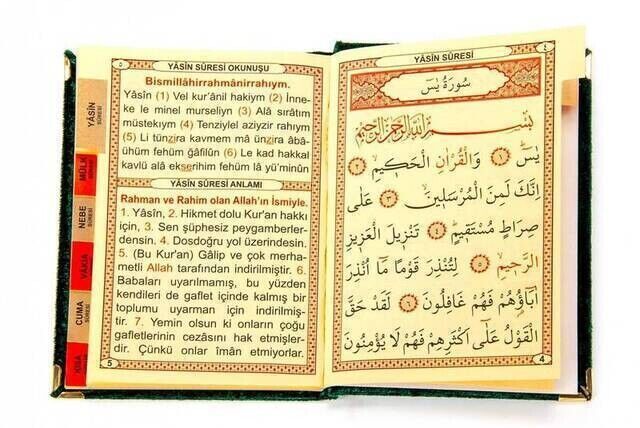 ٥
YÂSÎN SÛRESİ OKUNUŞU
Bismillâhirrahmânirrahıym.
Yâsîn (1) Vel kur'ânil hakiym (2) İnne-
ke le minel murseliyn (3) Alâ sırâtım
müstekıym (4) Tenziylel aziyzir rahıym
(5) Li tünzira kavmem mâ ünzira âbâ-
ühüm fehüm gâfilûn (6) Le kad hakkal
kavlü alâ ekserihim fehüm lâ yü'minûn
YÂSÎN SÛRESİ ANLAMI
Rahman ve Rahim olan Allah'ın İsmiyle.
1. Yâsîn, 2. Hikmet dolu Kur'an hakkı
için, 3. Sen şüphesiz peygamberler-
densin. 4. Dosdoğru yol üzerindesin.
5. (Bu Kur'an) Gâlip ve çok merha-
metli Allah tarafından indirilmiştir. 6.
Babaları uyarılmamış, bu yüzden
kendileri de gaflet içinde kalmış bir
toplumu uyarman için indirilmiş-
tir. 7. Yemin olsun ki onların çoğu
gafletlerinin cezasını hak etmişler-
dir. Çünkü onlar îmân etmiyorlar.
5
YÂSÎN SÛRESİ
MÜLK SÛRESİ
NEBE SÛRESİ
VAKIA
CUMA SÛRESİ
YÂSÎN SÛRESİ
٤
سُورَةُ يٰسٓ
بِسْمِ اللّٰهِ الرَّحْمٰنِ الرَّحِيمِ
يٰسٓ ﴿١﴾ وَالْقُرْاٰنِ الْحَكِيمِ ﴿٢﴾
اِنَّكَ لَمِنَ الْمُرْسَلِينَ ﴿٣﴾ عَلٰى
صِرَاطٍ مُسْتَقِيمٍ ﴿٤﴾ تَنْزِيلَ الْعَزِيزِ
الرَّحِيمِ ﴿٥﴾ لِتُنْذِرَ قَوْمًا مَٓا اُنْذِرَ
اٰبَٓاؤُهُمْ فَهُمْ غَافِلُونَ ﴿٦﴾ لَقَدْ حَقَّ
الْقَوْلُ عَلٰٓى اَكْثَرِهِمْ فَهُمْ لَا يُؤْمِنُونَ
4